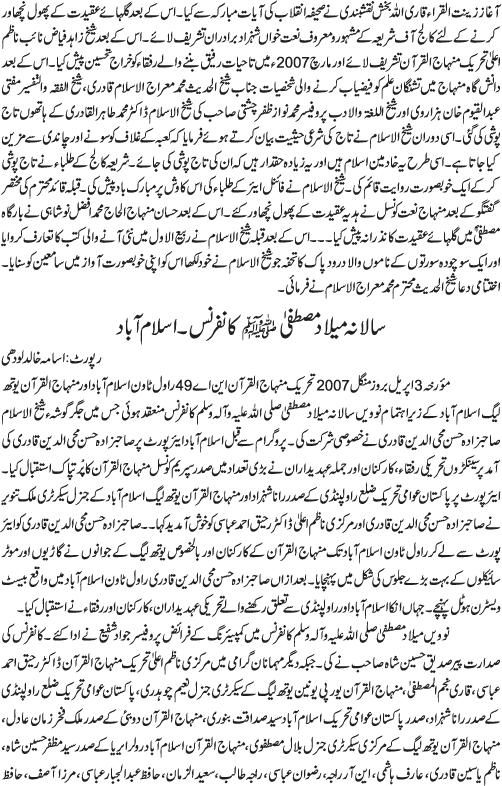 آغاز زینت القراء قاری اللہ بخش نقشبندی نے صحیفہ انقلاب کی آیات مبارکہ سے کیا۔ اس کے بعد گلہائے عقیدت کے پھول نچھاور
کرنے کے لئے کالج آف شریعہ کے مشہور و معروف نعت خواں شہزاد برادران تشریف لائے۔ اس کے بعد شیخ زاہد فیاض نائب ناظم
اعلیٰ تحریک منہاج القرآن تشریف لائے اور مارچ 2007ء میں تاحیات رفیق بننے والے رفقاء کو خراج تحسین پیش کیا۔ اس کے بعد
دانش گاہ منہاج میں تشنگان علم کو فیضیاب کرنے والی شخصیات جناب شیخ الحدیث محمد معراج الاسلام قادری، شیخ الفقہ والتفسیر مفتی
عبدالقیوم خان ہزاروی اور شیخ اللغۃ والادب پروفیسر محمد نواز ظفر چشتی صاحب کی شیخ الاسلام ڈاکٹر محمد طاہرالقادری کے ہاتھوں تاج
پوشی کی گئی۔ اسی دوران شیخ الاسلام نے تاج کی شرعی حیثیت بیان کرتے ہوئے فرمایا کہ کعبہ کے غلاف کو سونے اور چاندی سے مزین
کیا جاتا ہے۔ اسی طرح یہ خادمین اسلام ہیں اور یہ زیادہ حقدار ہیں کہ ان کی تاج پوشی کی جائے۔ شریعہ کالج کے طلباء نے تاج پوشی
کر کے ایک خوبصورت روایت قائم کی۔ شیخ الاسلام نے فائنل ایئر کے طلباء کی اس کاوش پر مبارک باد پیش کی۔ قبلہ قائد محترم کی مختصر
گفتگو کے بعد منہاج نعت کونسل نے ہدیہ عقیدت کے پھول نچھاور کئے۔ اس کے بعد حسان منہاج الحاج محمد افضل نوشاہی نے بارگاہ
مصطفیٰ میں گلہائے عقیدت کا نذرانہ پیش کیا۔۔۔ اس کے بعد قبلہ شیخ الاسلام نے ربیع الاول میں نئی آنے والی کتب کا تعارف کروایا
اور ایک سو چودہ سورتوں کے ناموں والا درود پاک کا تحفہ جو شیخ الاسلام نے خود لکھا اس کو اپنی خوبصورت آواز میں سامعین کو سنایا۔
اختتامی دعا شیخ الحدیث محترم محمد معراج الاسلام نے فرمائی۔
سالانہ میلاد مصطفیٰ ﷺ کانفرنس۔ اسلام آباد
رپورٹ: اسامہ خالد لودھی
مؤرخہ 3 اپریل بروز منگل 2007 تحریک منہاج القرآن این اے 49 راول ٹاون اسلام آباد اور منہاج القرآن یوتھ
لیگ اسلام آباد کے زیر اہتمام نویں سالانہ میلاد مصطفیٰ صلی اللہ علیہ وآلہ وسلم کانفرنس منعقد ہوئی جس میں جگر گوشہء شیخ الاسلام
صاحبزادہ حسن محی الدین قادری نے خصوصی شرکت کی۔ پروگرام سے قبل اسلام آباد ایئر پورٹ پر صاحبزادہ حسن محی الدین قادری کی
آمد پر سینکڑوں تحریکی رفقاء، کارکنان اور جملہ عہدیداران نے بڑی تعداد میں صدر سپریم کونسل منہاج القرآن کا پرتپاک استقبال کیا۔
ایئر پورٹ پر پاکستان عوامی تحریک ضلع راولپنڈی کے صدر رانا شہزاد اور منہاج القرآن یوتھ لیگ اسلام آباد کے سیکرٹری ملک تنویر
نے صاحبزادہ حسن محی الدین قادری اور مرکزی ناظم اعلیٰ ڈاکٹر رحیق احمد عباسی کو خوش آمدید کہا۔۔ صاحبزادہ حسن محی الدین قادری کو ایئر
پورٹ سے لے کر راول ٹاون اسلام آباد تک منہاج القرآن کے کارکنان اور بالخصوص یوتھ لیگ کے جوانوں نے گاڑیوں اور موٹر
سائیکلوں کے بہت بڑے جلوس کی شکل میں پہنچایا۔ بعد ازاں صاحبزادہ حسن محی الدین قادری راول ٹاون اسلام آباد میں واقع بیسٹ
ویسٹرن ہوٹل پہنچے۔ جہاں انکا اسلام آباد اور راولپنڈی سے تعلق رکھنے والے تحریکی عہدیداران، کارکنان اور رفقاء نے استقبال کیا۔
نویں میلاد مصطفیٰ صلی اللہ علیہ وآلہ وسلم کانفرنس میں کمپیئرنگ کے فرائض پروفیسر جواد شفیع نے ادا کئے۔ کانفرنس کی
صدارت پیر صدیق حسین شاہ صاحب نے کی۔ جبکہ دیگر مہمانان گرامی میں مرکزی ناظم اعلیٰ تحریک منہاج القرآن ڈاکٹر رحیق احمد
عباسی، قاری نجم المصطفیٰ، منہاج القرآن یورپی یونین یوتھ لیگ کے سیکرٹری جنرل نعیم چوہدری، پاکستان عوامی تحریک ضلع راولپنڈی
کے صدر رانا شہزاد، صدر پاکستان عوامی تحریک اسلام آباد سید صداقت بنوری، منہاج القرآن دوبئی کے صدر ملک فخر زمان عادل،
منہاج القرآن یوتھ لیگ کے مرکزی سیکرٹری جنرل بلال مصطفوی، منہاج القرآن اسلام آباد رورل ایریا کے صدر سید مظفر حسین شاہ،
ناظم یاسین قادری، عارف ہاشمی، این آر راجہ، رضوان عباسی، راجہ طالب، سعید الزمان، حافظ عبدالجبار عباسی، مرزا آصف، حافظ